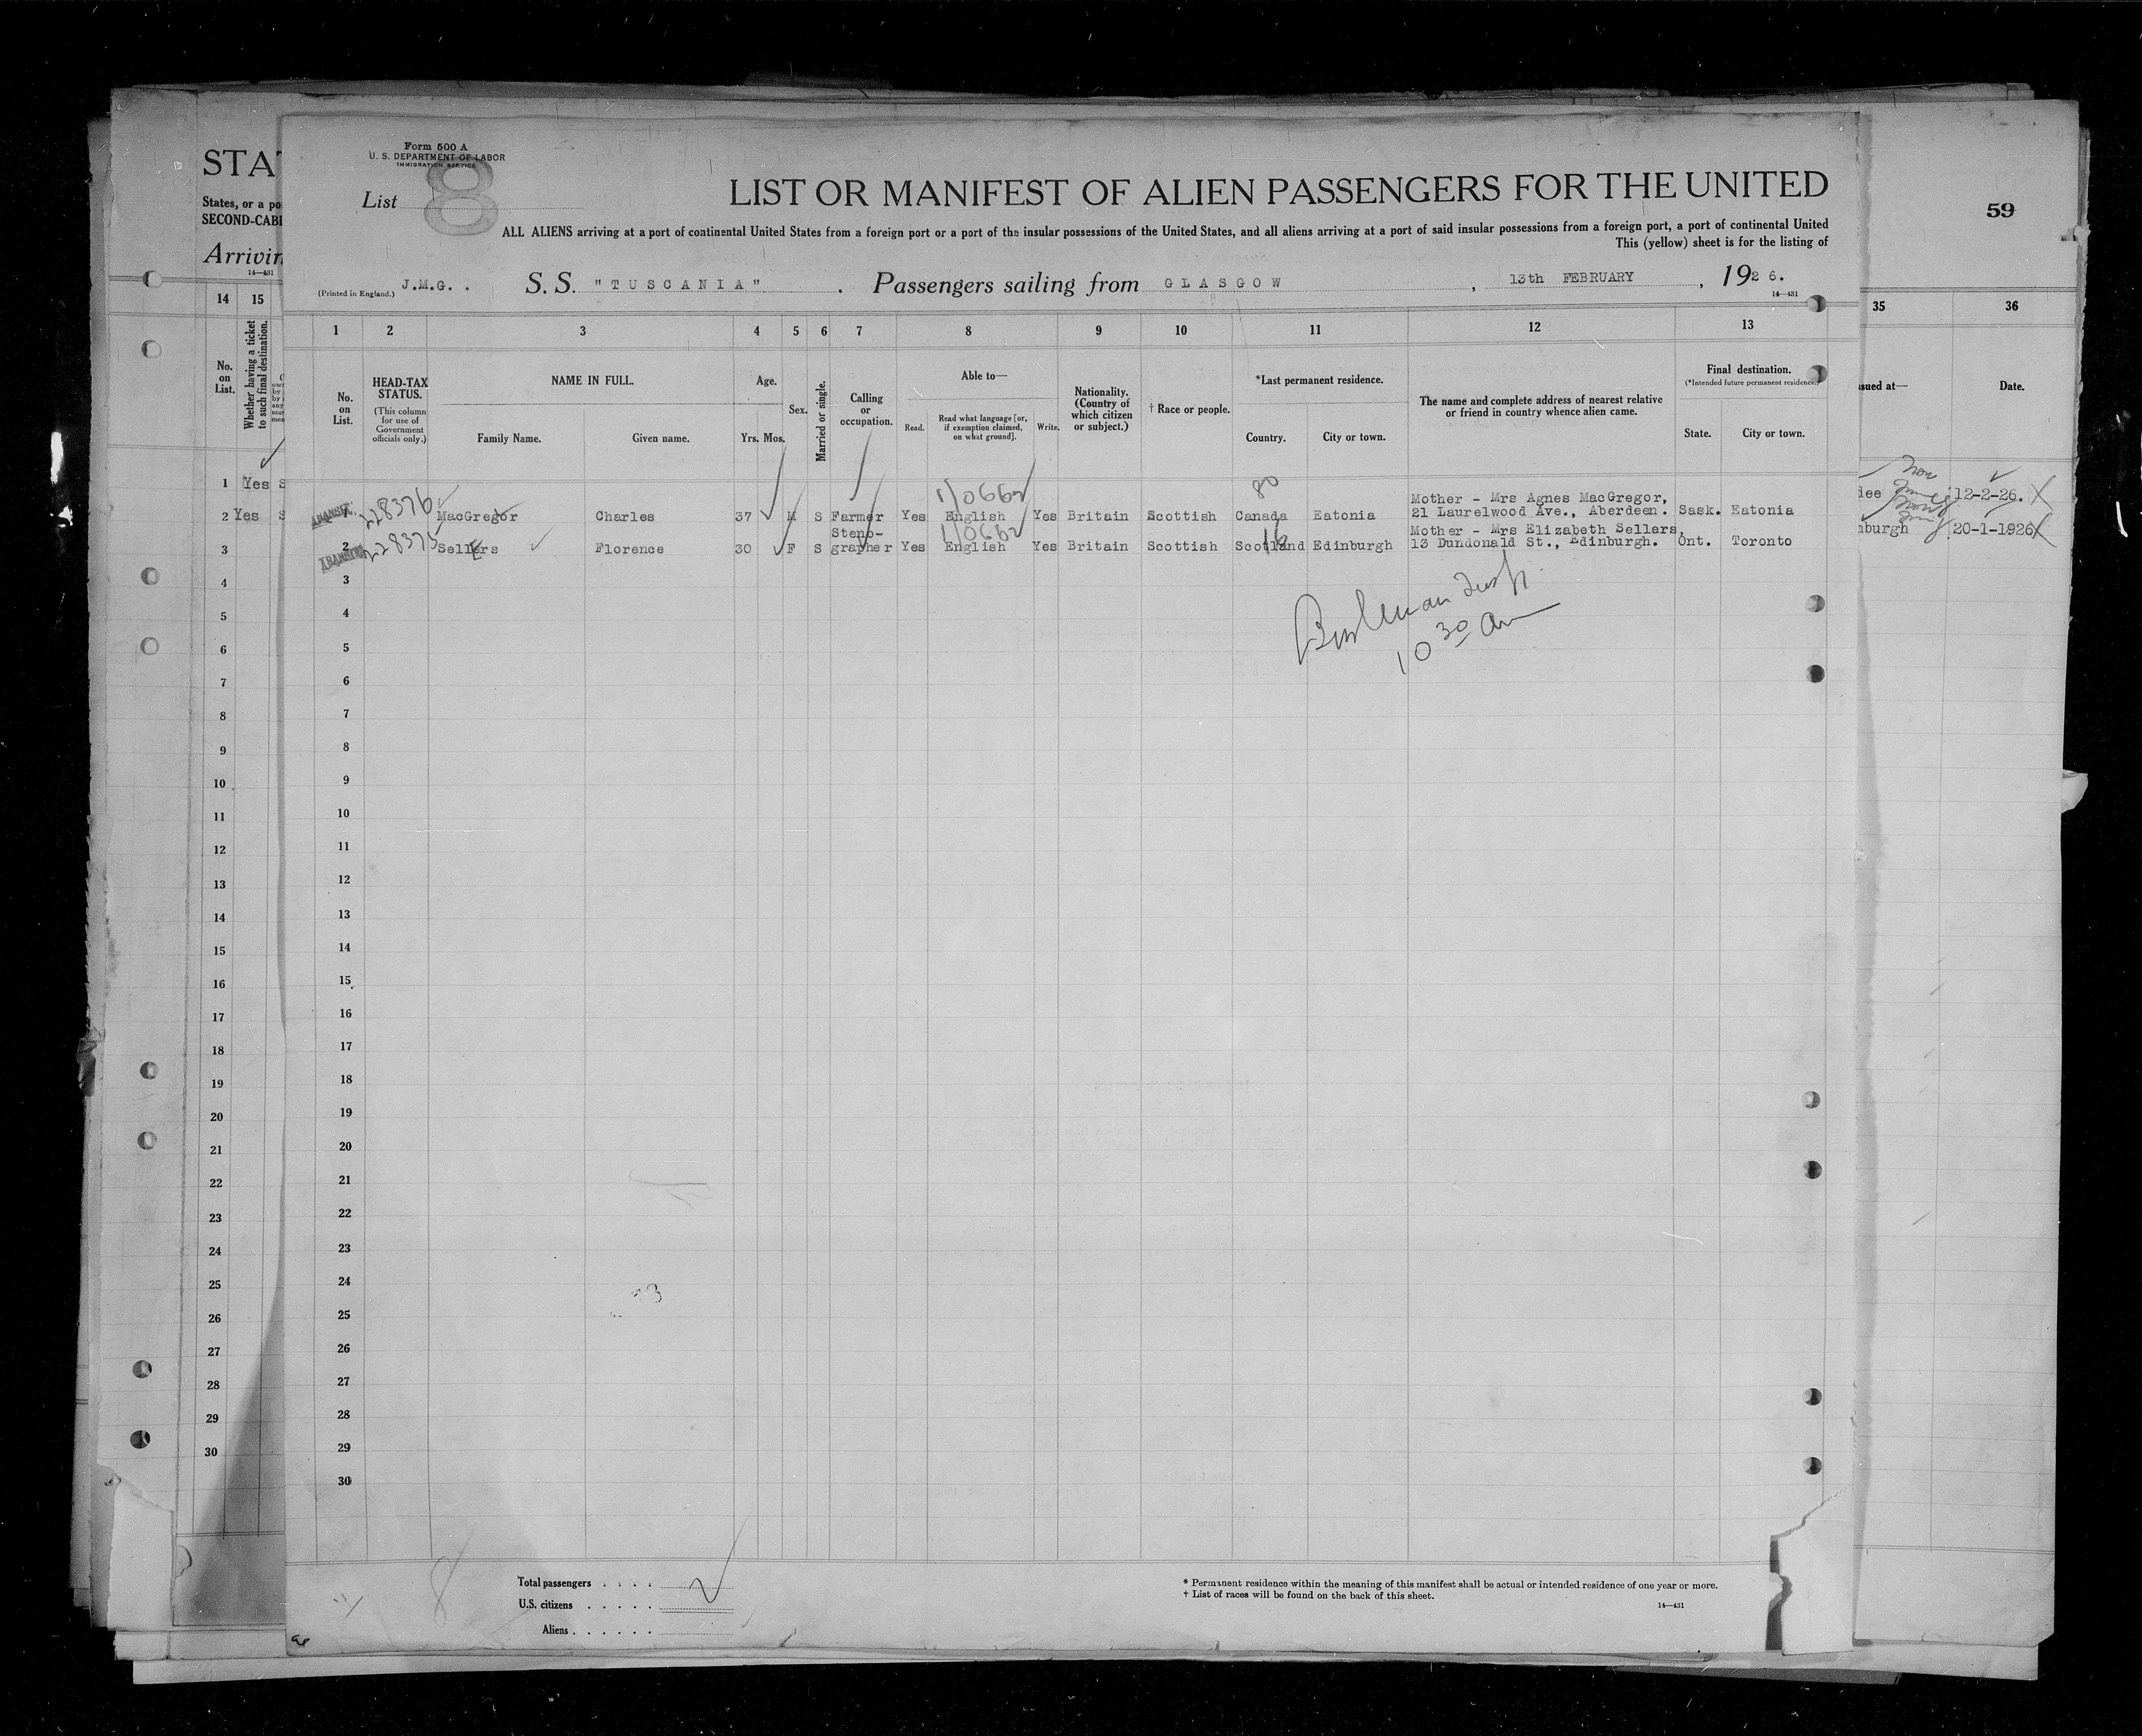 Form 500 A
U. S. DEPARTMENT OF LABOR
IMMIGRATION SERVICE
List 8
LIST OR MANIFEST OF ALIEN PASSENGERS FOR THE UNITED
ALL ALIENS arriving at a port of continental United States from a foreign port or a port of the insular possessions of the United States, and all aliens arriving at a port of said insular possessions from a foreign port, a port of continental United
This (yellow) sheet is for the listing of
(Printed in England.) J.M.G. . S. S. "TUSCANIA" . Passengers sailing from GLASGOW , 13th FEBRUARY , 1926.
14—431
1 2 3 4 5 6 7 8 9 10 11 12 13
No. on List.
HEAD-TAX STATUS.
(This column for use of Government officials only.)
NAME IN FULL.
Family Name. Given name.
Age.
Yrs. Mos.
Sex.
Married or single.
Calling or occupation.
Able to—
Read. Read what language [or, if exemption claimed, on what ground]. Write.
Nationality. (Country of which citizen or subject.)
† Race or people.
*Last permanent residence.
Country. City or town.
The name and complete address of nearest relative or friend in country whence alien came.
Final destination.
(*Intended future permanent residence.)
State. City or town.
80
1/0662
Mother - Mrs Agnes MacGregor,
1 228376 MacGregor Charles 37 M S Farmer Yes English Yes Britain Scottish Canada Eatonia 21 Laurelwood Ave., Aberdeen. Sask. Eatonia
1/0662
Steno- Mother - Mrs Elizabeth Sellers,
TRANSIT 2 228375 Sellers Florence 30 F S grapher Yes English Yes Britain Scottish Scotland Edinburgh 13 Dundonald St., Edinburgh. Ont. Toronto
10 30 am
3
4
5
6
7
8
9
10
11
12
13
14
15
16
17
18
19
20
21
22
23
24
25
26
27
28
29
30
8
Total passengers . . . .
U.S. citizens . . . . .
Aliens . . . . . .
* Permanent residence within the meaning of this manifest shall be actual or intended residence of one year or more.
† List of races will be found on the back of this sheet.
14—431
STA
States, or a po
SECOND-CABI
Arrivin
14—431
14 15
No. on List.
Whether having a ticket to such final destination.
1 Yes S
2 Yes S
3
4
5
6
7
8
9
10
11
12
13
14
15
16
17
18
19
20
21
22
23
24
25
26
27
28
29
30
59
35 36
ssued at— Date.
dee 12-2-26.
nburgh 20-1-1926